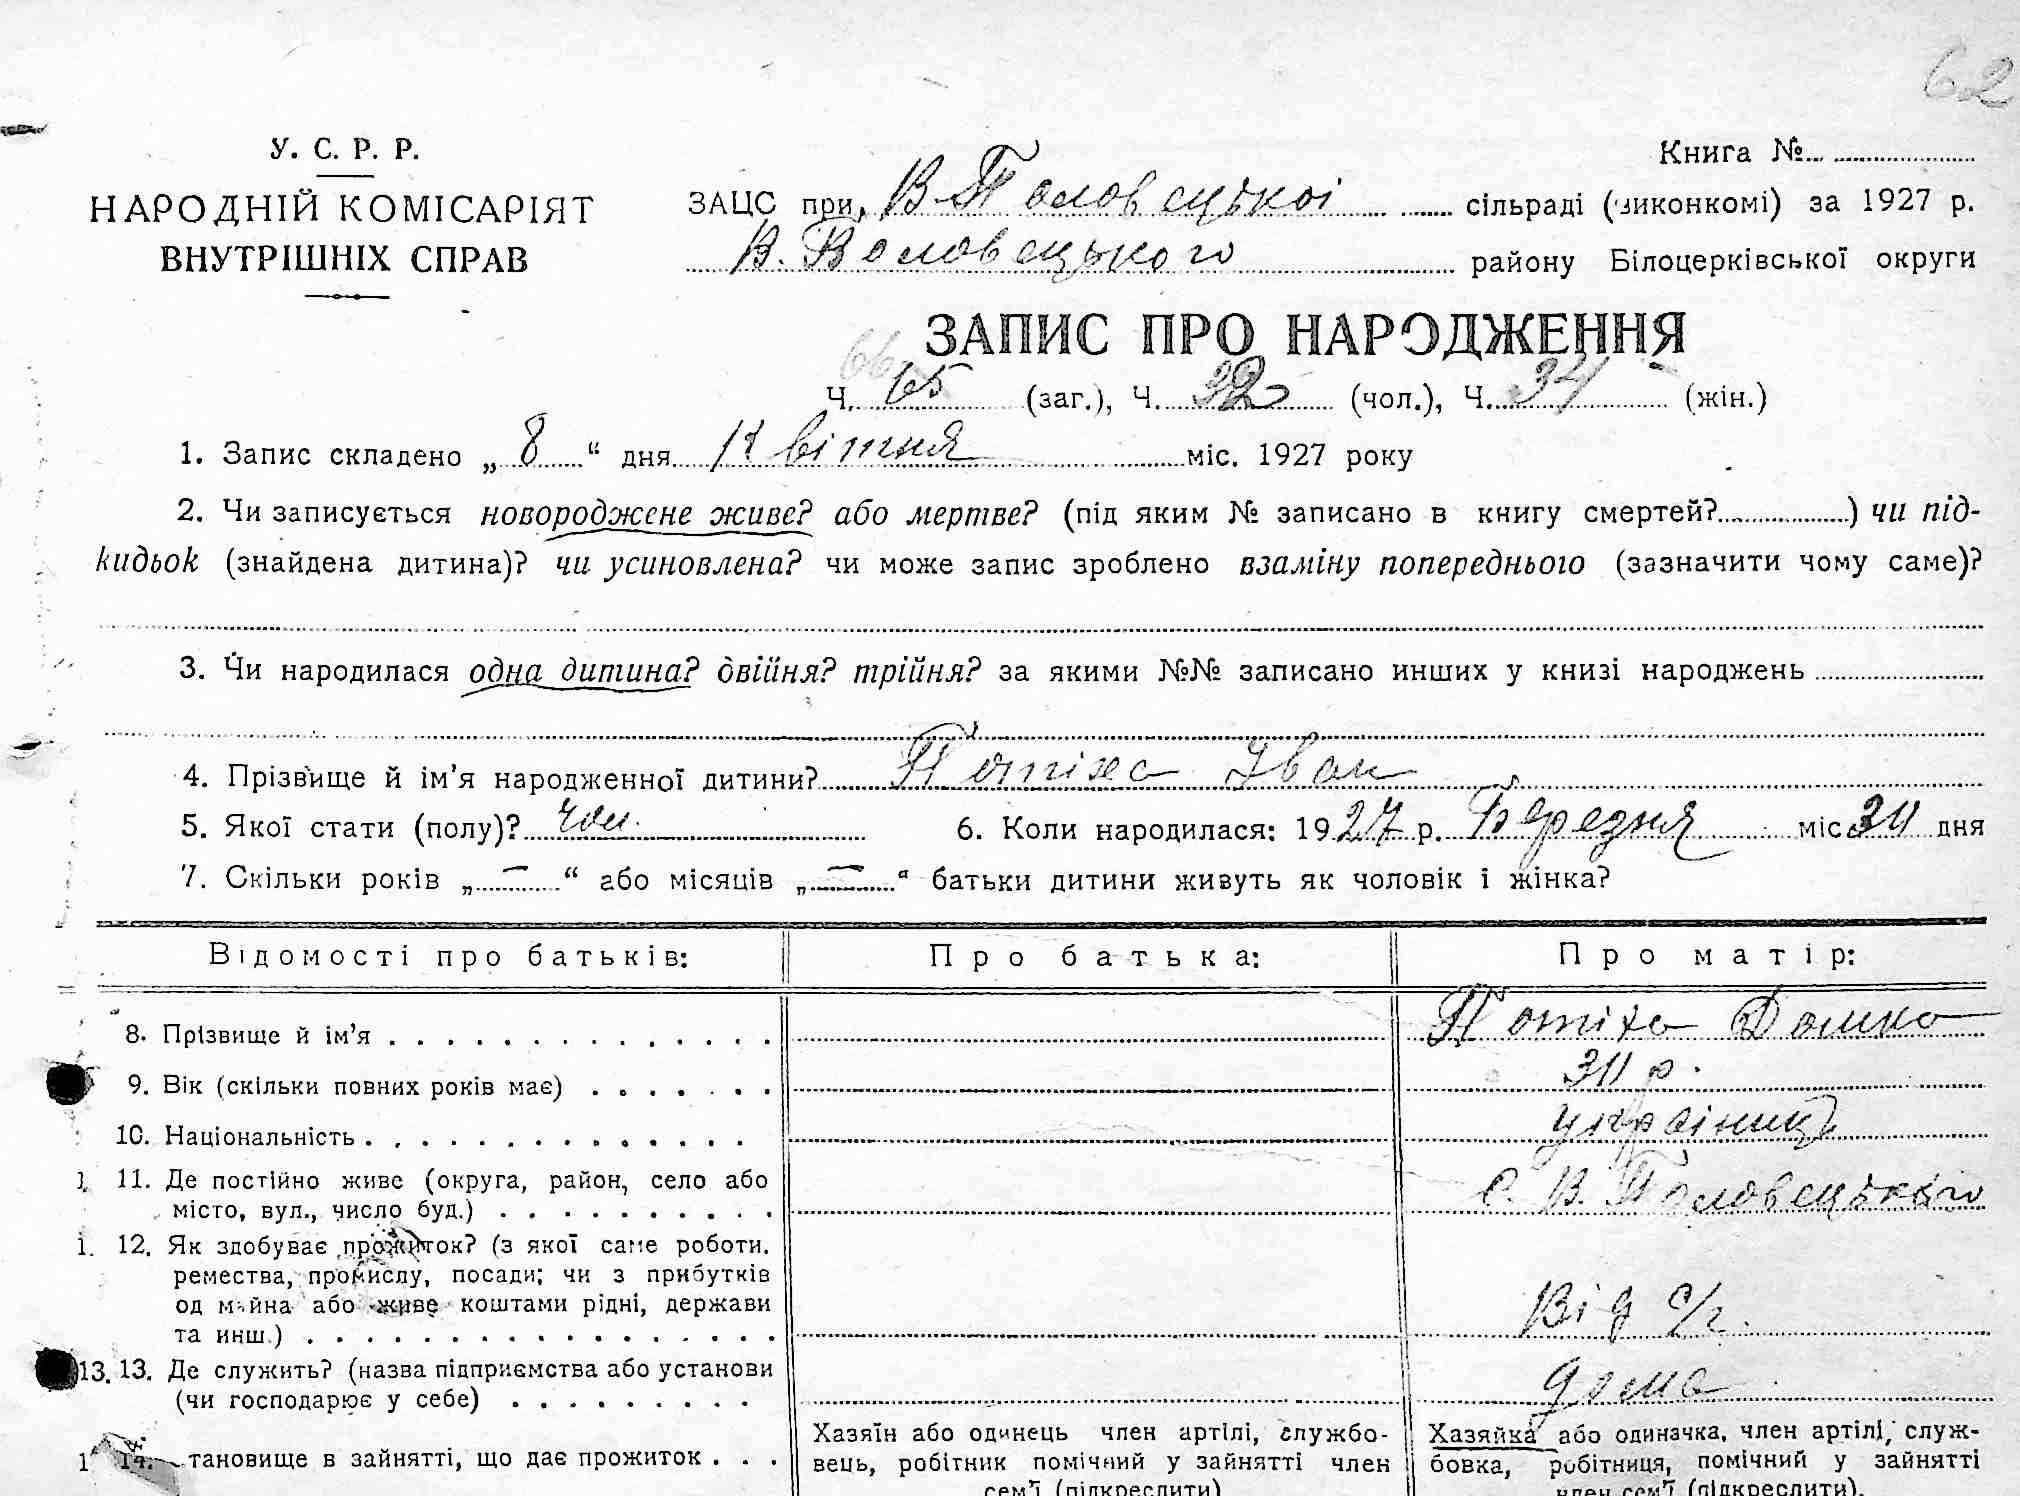 62
У. С. Р. Р.
НАРОДНІЙ КОМІСАРІЯТ
ВНУТРІШНІХ СПРАВ
Книга №
ЗАЦС при В Половецькоі сільраді (виконкомі) за 1927 р.
В. Половецького району Білоцерківської округи
ЗАПИС ПРО НАРОДЖЕННЯ
66
Ч. 65 (заг.), Ч. 32 (чол.), Ч. 34 (жін.)
1. Запис складено „ 8 “ дня Квітня міс. 1927 року
2. Чи записується новороджене живе? або мертве? (під яким № записано в книгу смертей? ) чи під-
кидьок (знайдена дитина)? чи усиновлена? чи може запис зроблено взаміну попереднього (зазначити чому саме)?
3. Чи народилася одна дитина? двійня? трійня? за якими №№ записано инших у книзі народжень
4. Прізвище й ім’я народженної дитини? Потіха Іван
5. Якої стати (полу)? чол. 6. Коли народилася: 1927 р. Березня міс 31 дня
7. Скільки років „ — “ або місяців „ — “ батьки дитини живуть як чоловік і жінка?
Відомості про батьків: Про батька: Про матір:
8. Прізвище й ім’я Потіха Домка
9. Вік (скільки повних років має) 31 р.
10. Національність українка
11. Де постійно живе (округа, район, село або
місто, вул., число буд.) с. В. Половецького
12. Як здобуває прожиток? (з якої саме роботи,
ремества, промислу, посади; чи з прибутків
од майна або живе коштами рідні, держави
та инш.) Від с/г.
13. 13. Де служить? (назва підприємства або установи
(чи господарює у себе) дома
Хазяїн або одинець член артілі, службо- Хазяйка або одиначка, член артілі, служ-
14. тановище в зайнятті, що дає прожиток вець, робітник помічний у зайнятті член бовка, робітниця, помічний у зайнятті
сем’ї (підкреслити) член сем’ї (підкреслити).